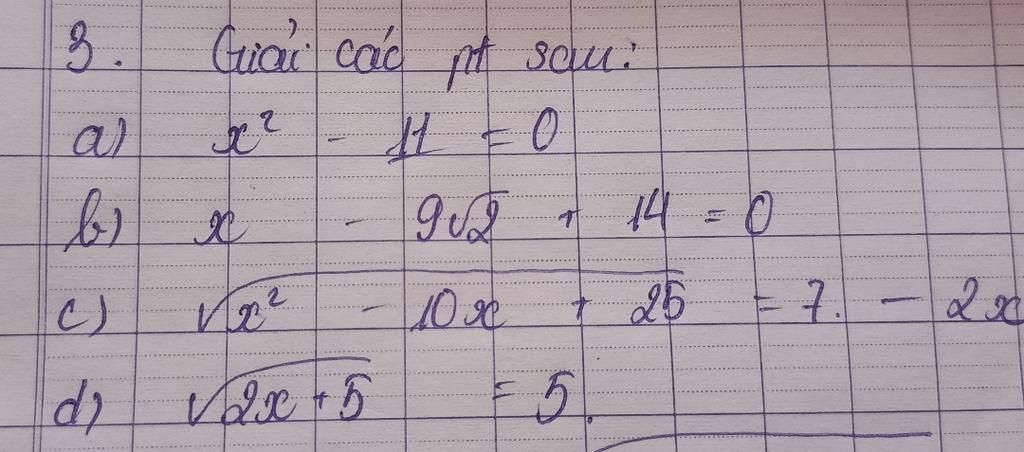 3. Giải các pt sau:
a) x² - 11 = 0
b) x - 9√2 + 14 = 0
c) √(x² - 10x + 25) = 7. - 2x
d) √(2x + 5) = 5.